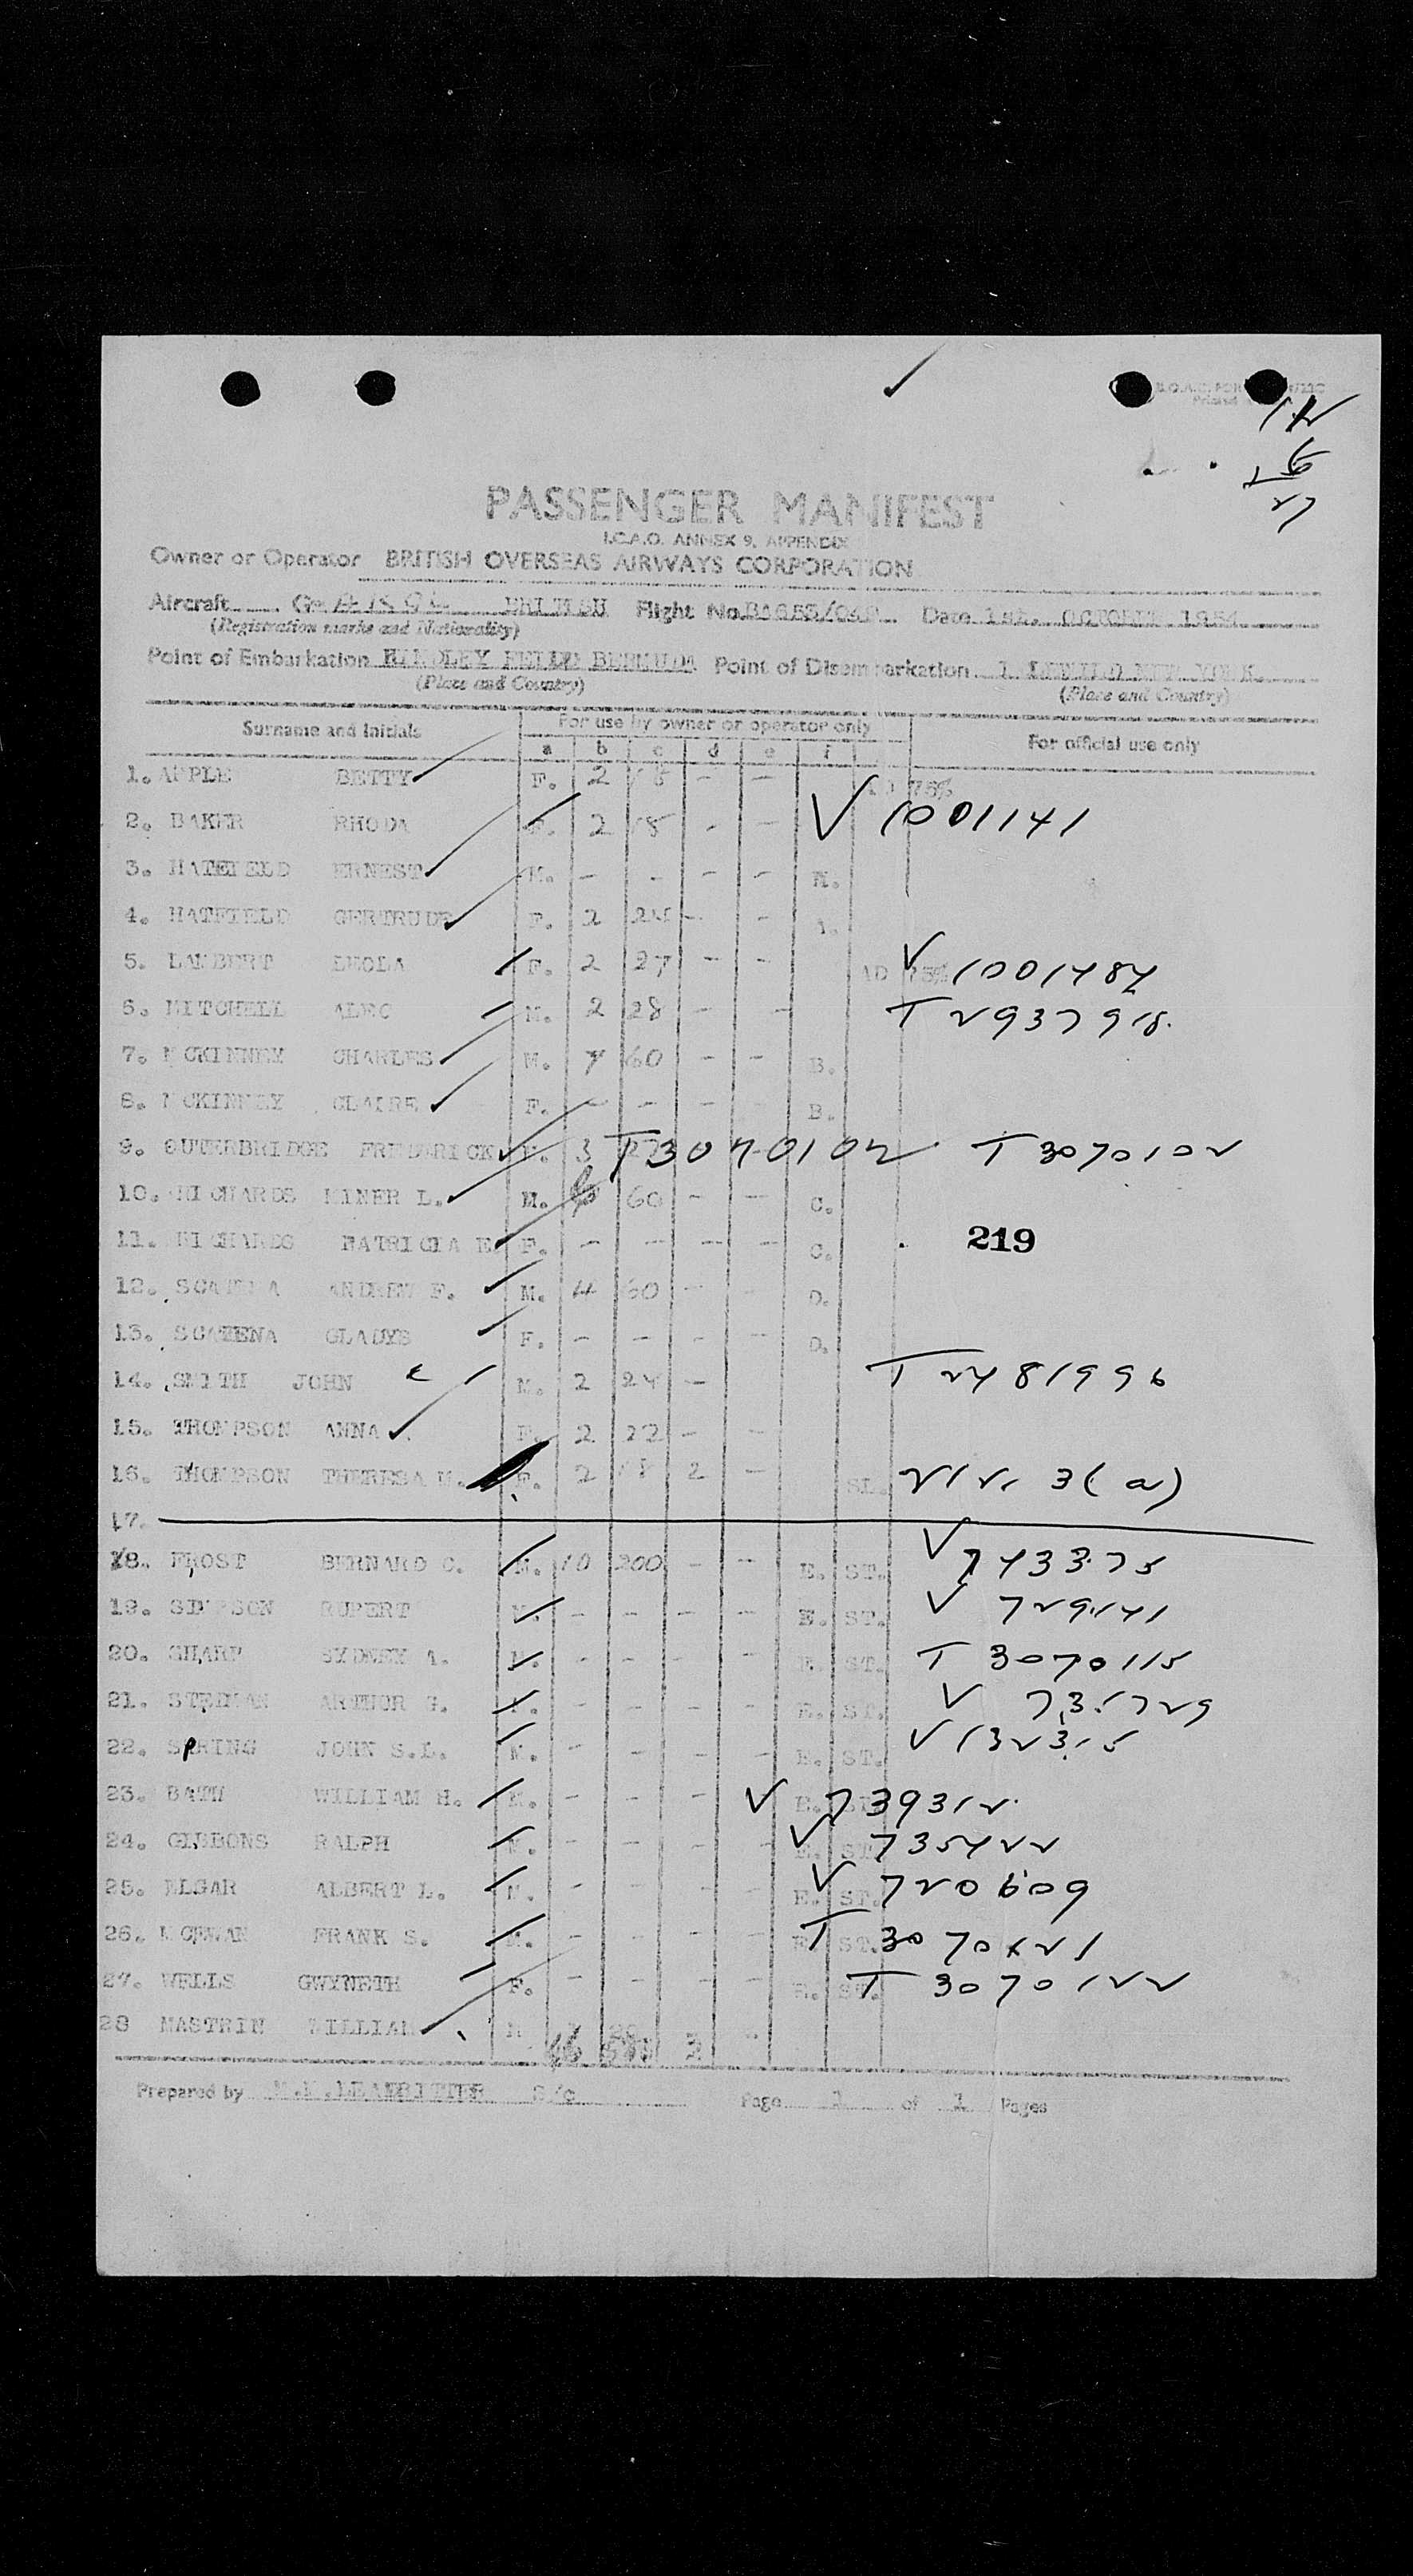 PASSENGER MANIFEST
I.C.A.O. ANNEX 9, APPENDIX
Owner or Operator BRITISH OVERSEAS AIRWAYS CORPORATION
Aircraft BRITISH Flight No. Date 1st. OCTOBER 1954
(Registration marks and Nationality)
Point of Embarkation Point of Disembarkation
(Place and Country) (Place and Country)
Surname and Initials For use by owner or operator only For official use only
a b c d e f
1. BETTY F. 2 18 - - 75%
2. BAKER RHODA F. 2 18 - - V 1001141
3. HATFIELD ERNEST M. - - - - A.
4. HATFIELD GERTRUDE F. 2 24 - - A.
5. LAMBERT F. 2 27 - - AD 75% V 1001484
6. MITCHELL ALEC M. 2 28 - - T 2937918
7. MCKINNEY CHARLES M. 4 60 - - B.
8. MCKINNEY CLAIRE F. - - - B.
9. OUTERBRIDGE FREDERICK M. 3 27 T3070102 T 3070102
10. RICHARDS MINER L. M. 60 - - C.
11. RICHARDS PATRICIA E. F. - - - - C.
219
12. SCATENA ANDREW F. M. 4 60 - - D.
13. SCATENA GLADYS F. - - - - D.
14. SMITH JOHN M. 2 24 - T 2481996
15. THOMPSON ANNA F. 2 22 - -
16. THOMPSON THERESA M. F. 2 18 2 - SL. 212. 3(a)
17.
18. FROST BERNARD C. M. 10 200 - - E. ST. V 743375
19. SIMPSON RUPERT M. - - - - E. ST. V 729141
20. SHARP SYDNEY A. M. - - - - E. ST. T 3070115
21. STEDMAN ARTHUR G. M. - - - - E. ST. V 731729
22. SPRING JOHN S.L. M. - - - - E. ST. V 132315
23. BATH WILLIAM H. M. - - - E. V 739312
24. GIBBONS RALPH M. - - - - E. ST. V 735422
25. ELGAR ALBERT L. M. - - - - E. ST. V 720609
26. FRANK S. M. - - - - E. ST. T 3070121
27. WELLS GWYNETH F. - - - - E. ST. T 3070122
28 MASTRIN WILLIAM M
Prepared by S/c Page 1 of 1 Pages